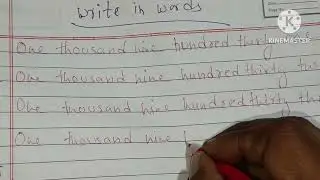 Write in words
KINEMASTER
One thousand nine hundred thirty
One thousand nine hundred thirty
One thousand nine hundred thirty
One thousand nine